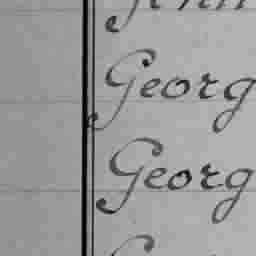 Georg
Georg